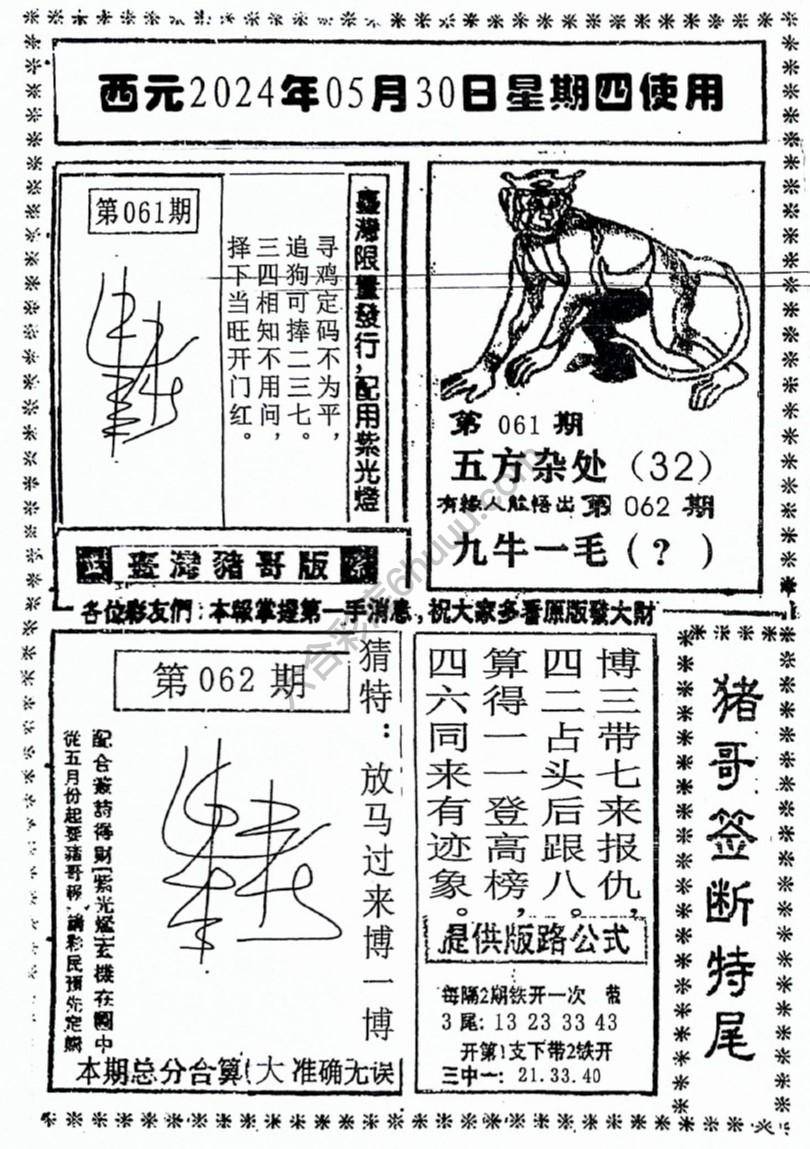 西元2024年05月30日星期四使用
第061期
寻鸡定码不为平，
追狗可捧二三七。
三四相知不用问，
择下当旺开门红。
臺灣限量發行，配用紫光燈
第 061 期
五方杂处（32）
有緣人能悟出 第 062 期
九牛一毛（？）
臺灣豬哥版
各位彩友們：本報掌握第一手消息，祝大家多看原版發大財
第062期
猜特：放马过来博一博
配合叢詩得財 紫光燈 玄機在圖中
從五月份起要豬哥報 請彩民預先定購
本期总分合算（大 准确无误
博三带七来报仇，
四二占头后跟八。
算得一一登高榜，
四六同来有迹象。
提供版路公式
每隔2期铁开一次 带
3尾: 13 23 33 43
开第1支下带2铁开
三中一: 21.33.40
猪哥签断特尾
六合彩库6huuu.com